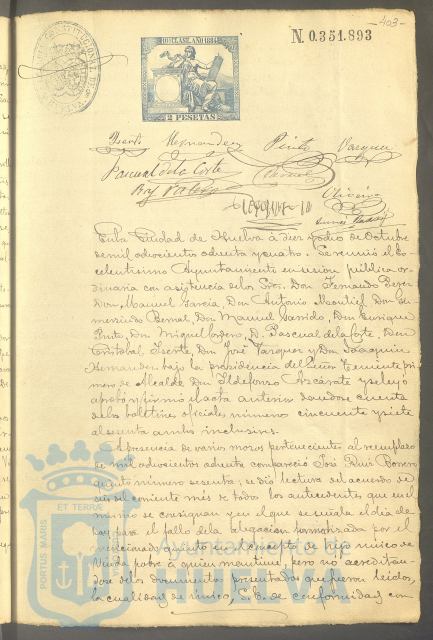 403
10ª CLASE. AÑO 1884
N. 0.351.893
2 PESETAS
Yserte Hernandez Pinto Vazquez
Pascual de la Corte
Oliveira
En la Ciudad de Huelva á diez y ocho de Octubre
de mil ochocientos ochenta y cuatro. Se reunió el Ex
celentisimo Ayuntamiento en sesion pública or
dinaria con asistencia de los Sres. Don Fernando Perez
Don Manuel Garcia, Don Antonio Montiel, Don Gu
mersindo Bernal, Don Manuel Garrido, Don Enrique
Pinto, Don Miguel Cordero, D. Pascual de la Corte, Don
Cristobal Yserte, Don José Vazquez y Don Joaquin
Hernandez bajo la presidencia del Señor Teniente pri
mero de Alcalde Don Ildefonso Azcarate y se leyó
aprobó y firmó el acta anterior dandose cuenta
de los boletines oficiales número cincuenta y siete
al sesenta ambos inclusives.
A presencia de varios mozos pertenecientes al reemplazo
de mil ochocientos ochenta compareció José Ruiz Romero
quinto número sesenta, se dió lectura del acuerdo de
seis del corriente más de todos los antecedentes que en el
mismo se consignan y en el que se señala el dia de
hoy para el fallo de la alegacion formalizada por el
mencionado quinto en el concepto de hijo único de
viuda pobre á quien mantiene, pero no acreditan
dose de los documentos presentados que fueron leidos,
la cualidad de único, S.E. de conformidad con
PORTUS MARIS ET TERRÆ
Ayuntamiento de
HUELVA